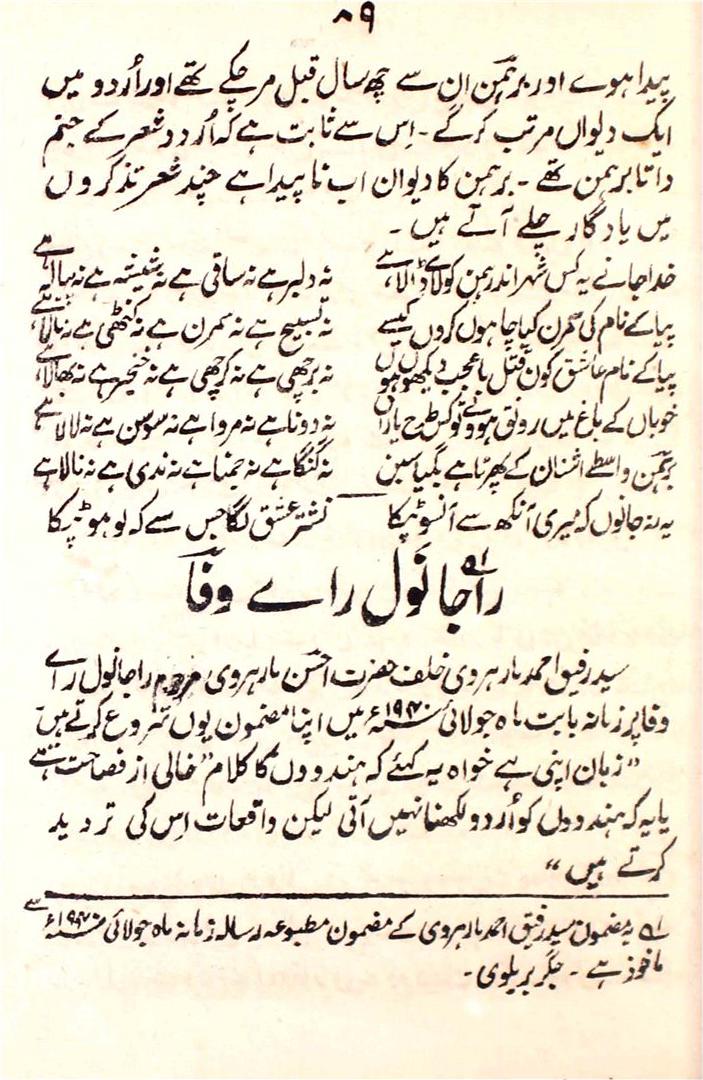 ۸۹
پیدا ہوے اور برہمن ان سے چھ سال قبل مر چکے تھے اور اُردو میں
ایک دیواں مرتب کر گے ۔ اِس سے ثابت ہے کہ اُردد شعر کے جنم
داتا برہمن تھے ۔ برہمن کا دیوان اب نا پیدا ہے چند شعر تذکروں
میں یادگار چلے آتے ہیں ۔
خدا جانے یہ کس شہر اندر ہمن کو لاے ڈالا ہے نہ دلبر ہے نہ ساقی ہے نہ شیشہ ہے نہ پیالہ ہے
پیا کے نام کی سمرن کیا چاہوں کروں کیسے نہ تسبیح ہے نہ سمرن ہے نہ کنٹھی ہے نہ مالا ہے
پیا کے نام عاشق کوں قتل با عجب دیکھو ہوں نہ برچھی ہے نہ کرچھی ہے نہ خنجر ہے نہ بھالا ہے
خوباں کے باغ میں رونق ہووے تو کس طرح یاراں نہ دونا ہے نہ مروا ہے نہ سوسن ہے نہ لالا ہے
برہمن واسطے اشنان کے پھرتا ہے بگیا سیں نہ گنگا ہے نہ جمنا ہے نہ ندی ہے نہ نالا ہے
یہ نہ جانوں کہ میری آنکھ سے آنسو ٹپکا نشتر عشق لگا جس سے کہ لوہو ٹپکا
راجا نَوَل راے وفا ؎۱
سید رفیق احمد مارہروی خلف حضرت احسن مارہروی مرحوم راجا نول راے
وفا پر زمانہ بابت ماہ جولائی ۱۹۴۰ء میں اپنا مضمون یوں شروع کرتے ہیں
”زبان اپنی ہے خواہ یہ کہئے کہ ہندووں کا کلام“ خالی از فصاحت ہے
یا یہ کہ ہندووں کو اُردو لکھنا نہیں آتی لیکن واقعات اِس کی تردید
کرتے ہیں “
؎۱ یہ مضمون سید رفیق احمد مارہروی کے مضمون مطبوعہ رسالہ زمانہ ماہ جولائی ۱۹۴۰ء سے
ماخوذ ہے ۔ جگر بریلوی ۔